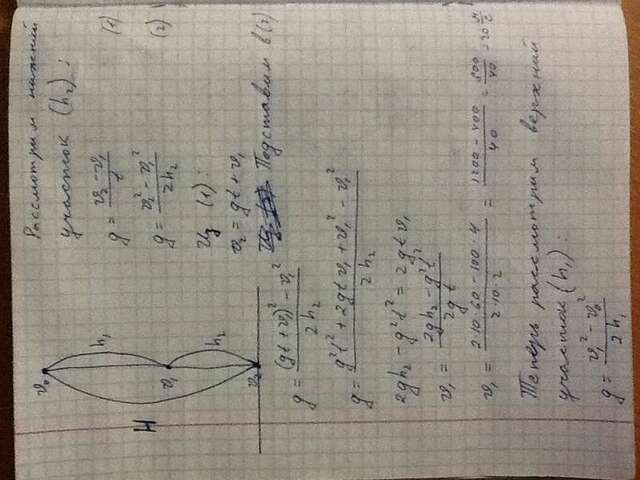 v₀
h₁
H
v₁
h₂
v₂
Рассмотрим нижний
участок (h₂):
g = (v₂ - v₁)/t (1)
g = (v₂² - v₁²)/(2h₂) (2)
Из (1):
v₂ = gt + v₁
Подставим в (2)
g = ((gt + v₁)² - v₁²)/(2h₂)
g = (g²t² + 2gtv₁ + v₁² - v₁²)/(2h₂)
2gh₂ - g²t² = 2gtv₁
v₁ = (2gh₂ - g²t²)/(2gt)
v₁ = (2·10·60 - 100·4)/(2·10·2) = (1200 - 400)/40 = 800/40 = 20 м/с
Теперь рассмотрим верхний
участок (h₁):
g = (v₁² - v₀²)/(2h₁)